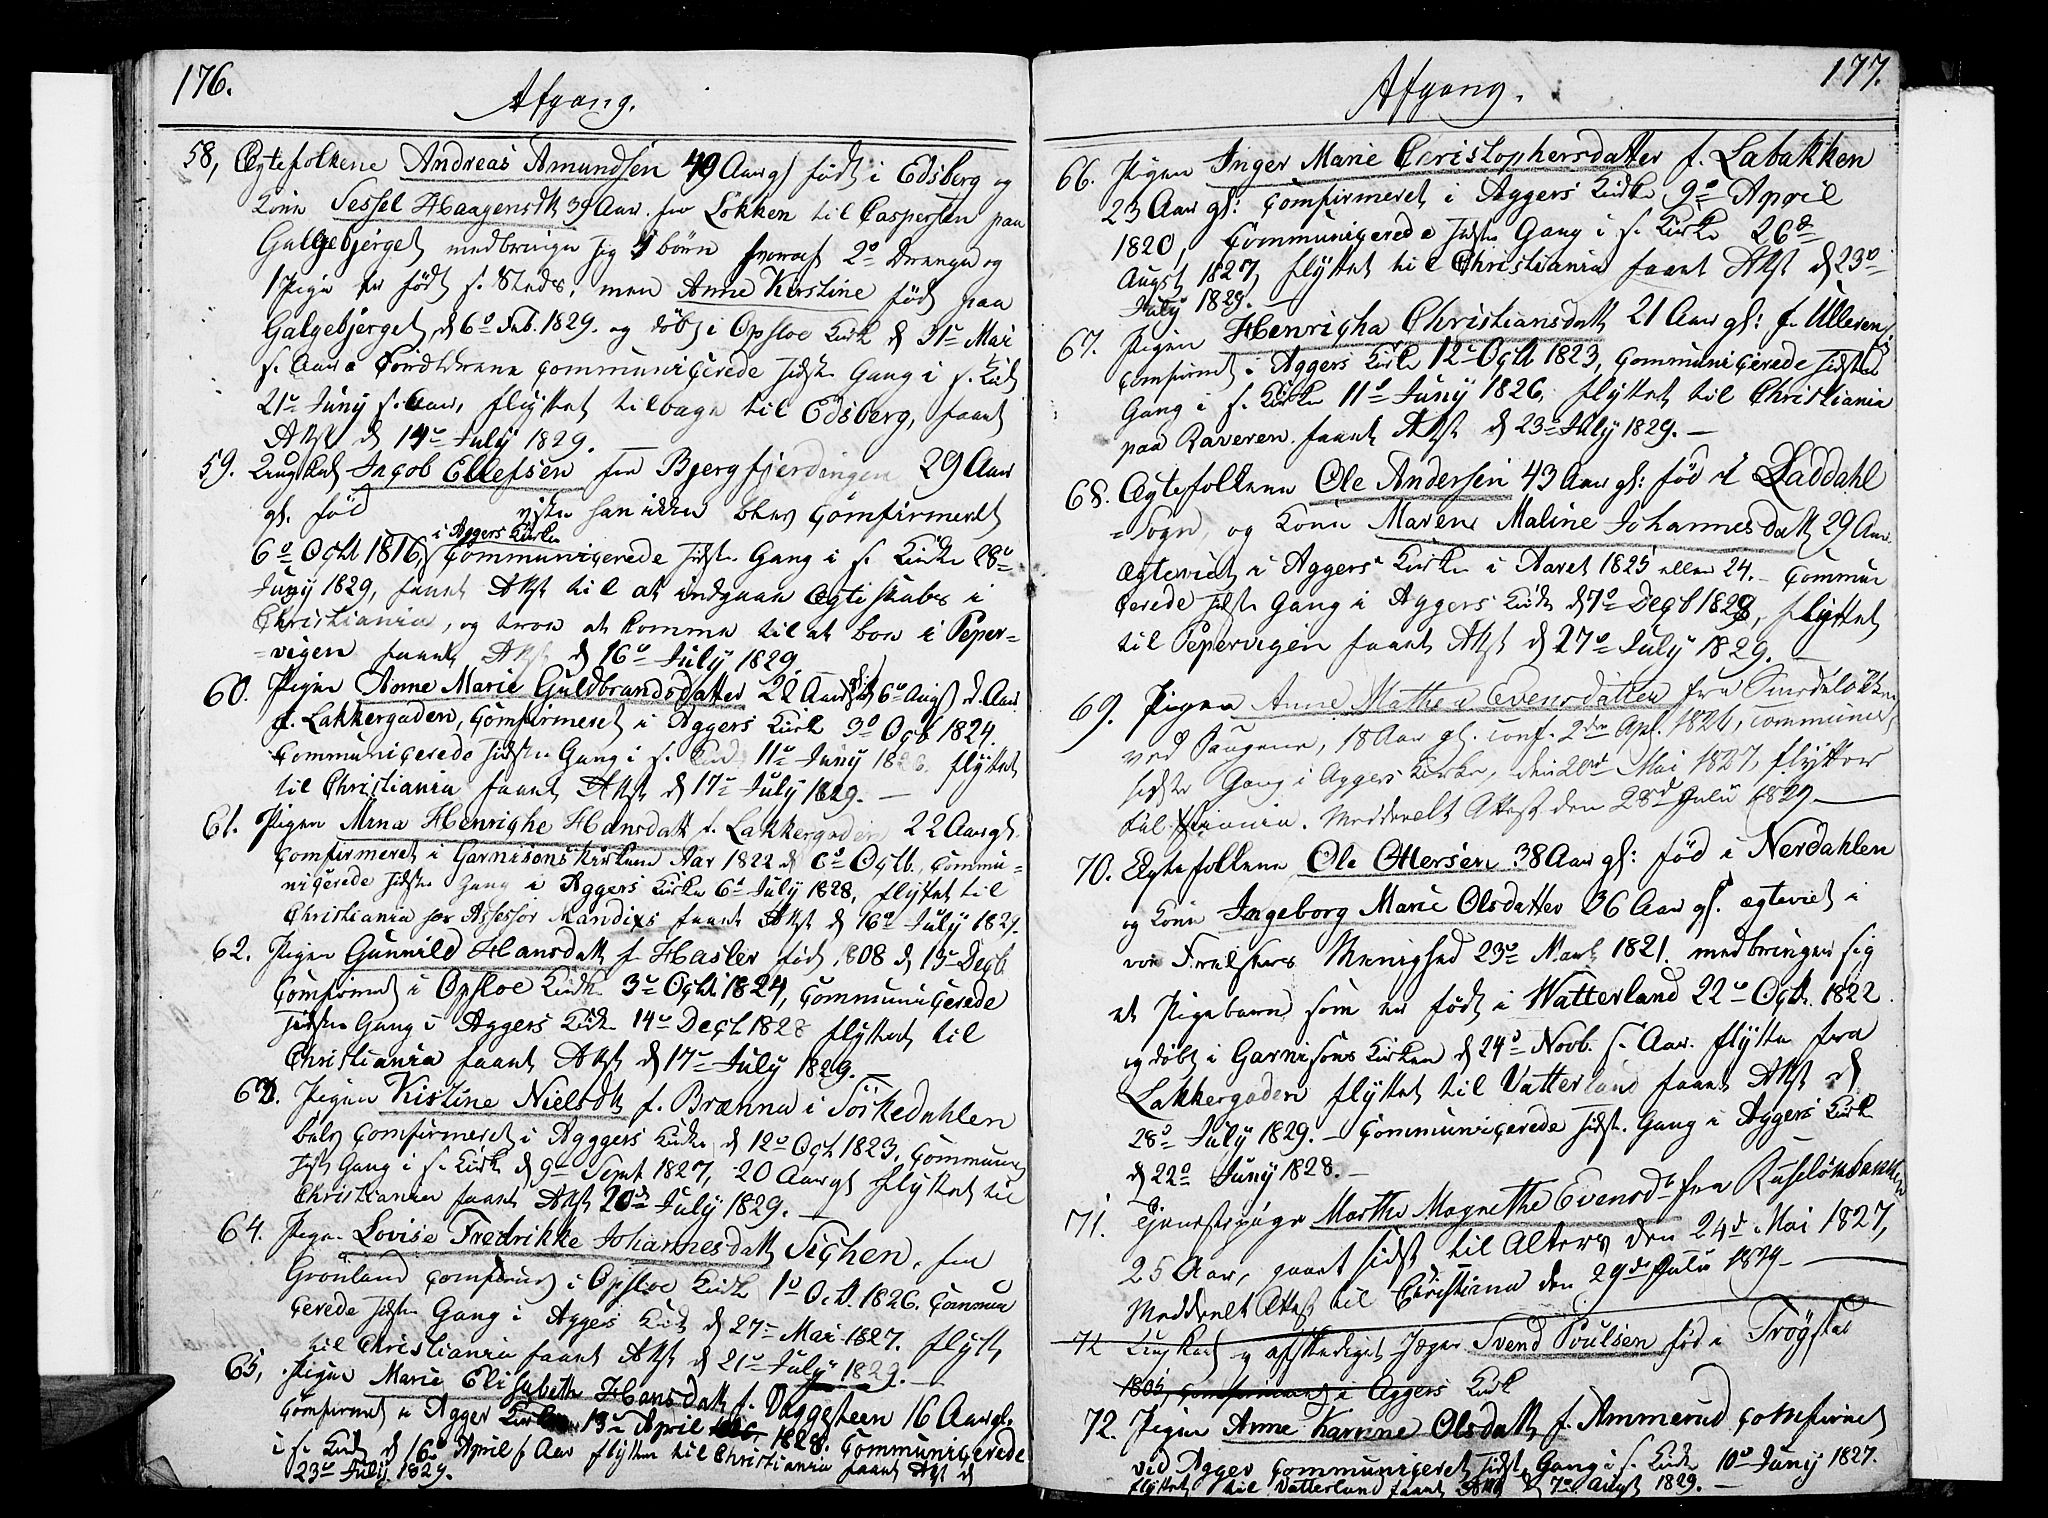 176.
Afgang.
58, Ægtefolkene Andreas Amundsen 49 Aar gl født i Edsberg og
Kone Sessel Haagensdtr 39 Aar. fra Løkken til Caspersen paa
Galgebjerget medbringer sig børn hvoraf 2 Drenge og
1 Pige er født s. Steds, men Anne Kirstine født paa
Galgebjerget d 6 Feb. 1829. og døbt i Opsloe Kirke d 31 Mai
s. Aar communicerede sidste Gang i s. Kirke
21 Juny s. Aar, flyttet tilbage til Edsberg, faaet
Attst d 14 July 1829.
59. Ungkarl Jacob Ellefsen fra Bjergfjerdingen 29 Aar
gl. född viste han ikke blev Comfirmeret
i Aggers Kirke
6 Octb 1816, Communicerede sidste Gang i s. Kirke 28
Juny 1829, faaet Attst til at indgaae Ægteskabs i
Christiania, og troe at komme til at boe i Peper-
=vigen faaet Attst d 16 July 1829.
60. Pigen Anne Marie Guldbrandsdatter 22 Aar 6 Augst d. Aar
f. Lakkergaden, Comfirmeret i Aggers Kirke 3 Octb 1824.
Communicerede sidste Gang i s. Kirke 11 Juny flyttet
til Christiania faaet Attst d 17 July 1829. —
61. Pigen Henrighe Hansdatt f. Lakkergaden 22 Aar gl.
Comfirmeret i Garnisons Kirken Aar 1822 d 6 Octb., Commu-
nicerede sidste Gang i Aggers Kirke 6 July 1828, flyttet til
Christiania hos Assessor Mandixs faaet Attst d 16 July 1829.
62. Pigen Gunnild Hansdatt f. Hasler født 1808 d 13 Decb.
Comfirmet i Opsloe Kirke 3 Octb 1824, Communicerede
sidste Gang i Aggers Kirke 14 Decb 1828 flyttet til
Christiania faaet Attst d 17 July 1829. —
63. Pigen Kistine Nielsdtr f. Brænna i Sørkedahlen
blev Comfirmeret i Agggers Kirke d 12 Oct 1823, Commun
sidst Gang i s. Kirke d 9 Sept 1827, 20 Aar gl flyttet til
Christiania faaet Attst 20 July 1829. —
64. Pigen Lovise Fredrikke Johannesdatt Sichen, fra
Grønland Comfirmet i Opsloe Kirke 1 Oct. 1826. Commun
cerede sidste Gang i Aggers Kirke d 27 Mai 1827. flytt
til Christiania faaet Attst d 21 July 1829. —
65, Pigen Marie Elisabeth Hansdatt f. Vaggesteen 16 Aar gl.
Comfirmet i Agger Kirke 13 April 1828. Communicerede
i s. Kirke d 16 April s Aar flyttet til Christiania faaet Attst d
23 July 1829.
177.
Afgang.
66. Pigen Inger Marie Christophersdatter f. Labakken
23 Aar gl: Comfirmeret i Aggers Kirke 9 April
1820, Communicerede sidste Gang i s. Kirke 26
Augst 1827, flyttet til Christiania faaet Attst d 23
July 1829. —
67. Pigen Henricha Christiansdatt 21 Aar gl: f. Ulleren
Comfirmet i Aggers Kirke 12 Octb 1823, Communicerede sidste
Gang i s. Kirke 11 Juny 1826, flyttet til Christiania
paa Raveren faaet Attst d 23 July 1829. —
68. Ægtefolkene Ole Andersen 43 Aar gl: fød i Laddahl
=Sogn, og Kone Maren Maline Johannesdatt 29 Aar.
Ægteviet i Aggers Kirke i Aaret 1825 eller 24. — Commu
cerede sidste Gang i Aggers Kirke d 7 Decb 1828, flyttet
til Pepervigen faaet Attst d 27 July 1829. —
69. Pigen Anne Mathea Evensdatter fra Smedeløkken
ved Saugene, 18 Aar gl. conf. 2den Apl. 1826, communic
sidste Gang i Aggers Kirke, den 20de Mai 1827, flytter
til Xstiania. Meddeelt Attest den 28d Julii 1829 —
70. Egtefolkene Ole Ottersen 38 Aar gl: fød i Nerdahlen
og Kone Ingeborg Marie Olsdatter 36 Aar gl. ægteviet i
vor Frelsers Menighed 23 Mart 1821. medbringer sig
et Pigebarn som er født i Watterland 22 Octb. 1822.
og døbt i Garnisons Kirken d 24 Novb. s. Aar. flytte fra
Lakkergaden flyttet til Vatterland faaet Attst d
28 July 1829. — Communicerede sidste Gang i Aggers Kirke
d 22 Juny 1828. —
71. Tjenestepige Marthe Magrethe Evensdtr fra Ruseløkbakken
25 Aar, gaaet sidst til Alters den 24d Mai 1827,
Meddeelt Attest til Christiania den 29de Julii 1829 —
72 Ungkarl og afskediget Jæger Svend Poulsen fød i Trøgstad
1805, Comfirmeret i Aggers Kirke
72. Pigen Anne Karrine Olsdatt f. Ammerud Comfirmet
ved Agger Communiceret sidste Gang i s. Kirke 10 Juny 1827.
flyttet til Vatterland faaet Attst d 7 Augst 1829. —